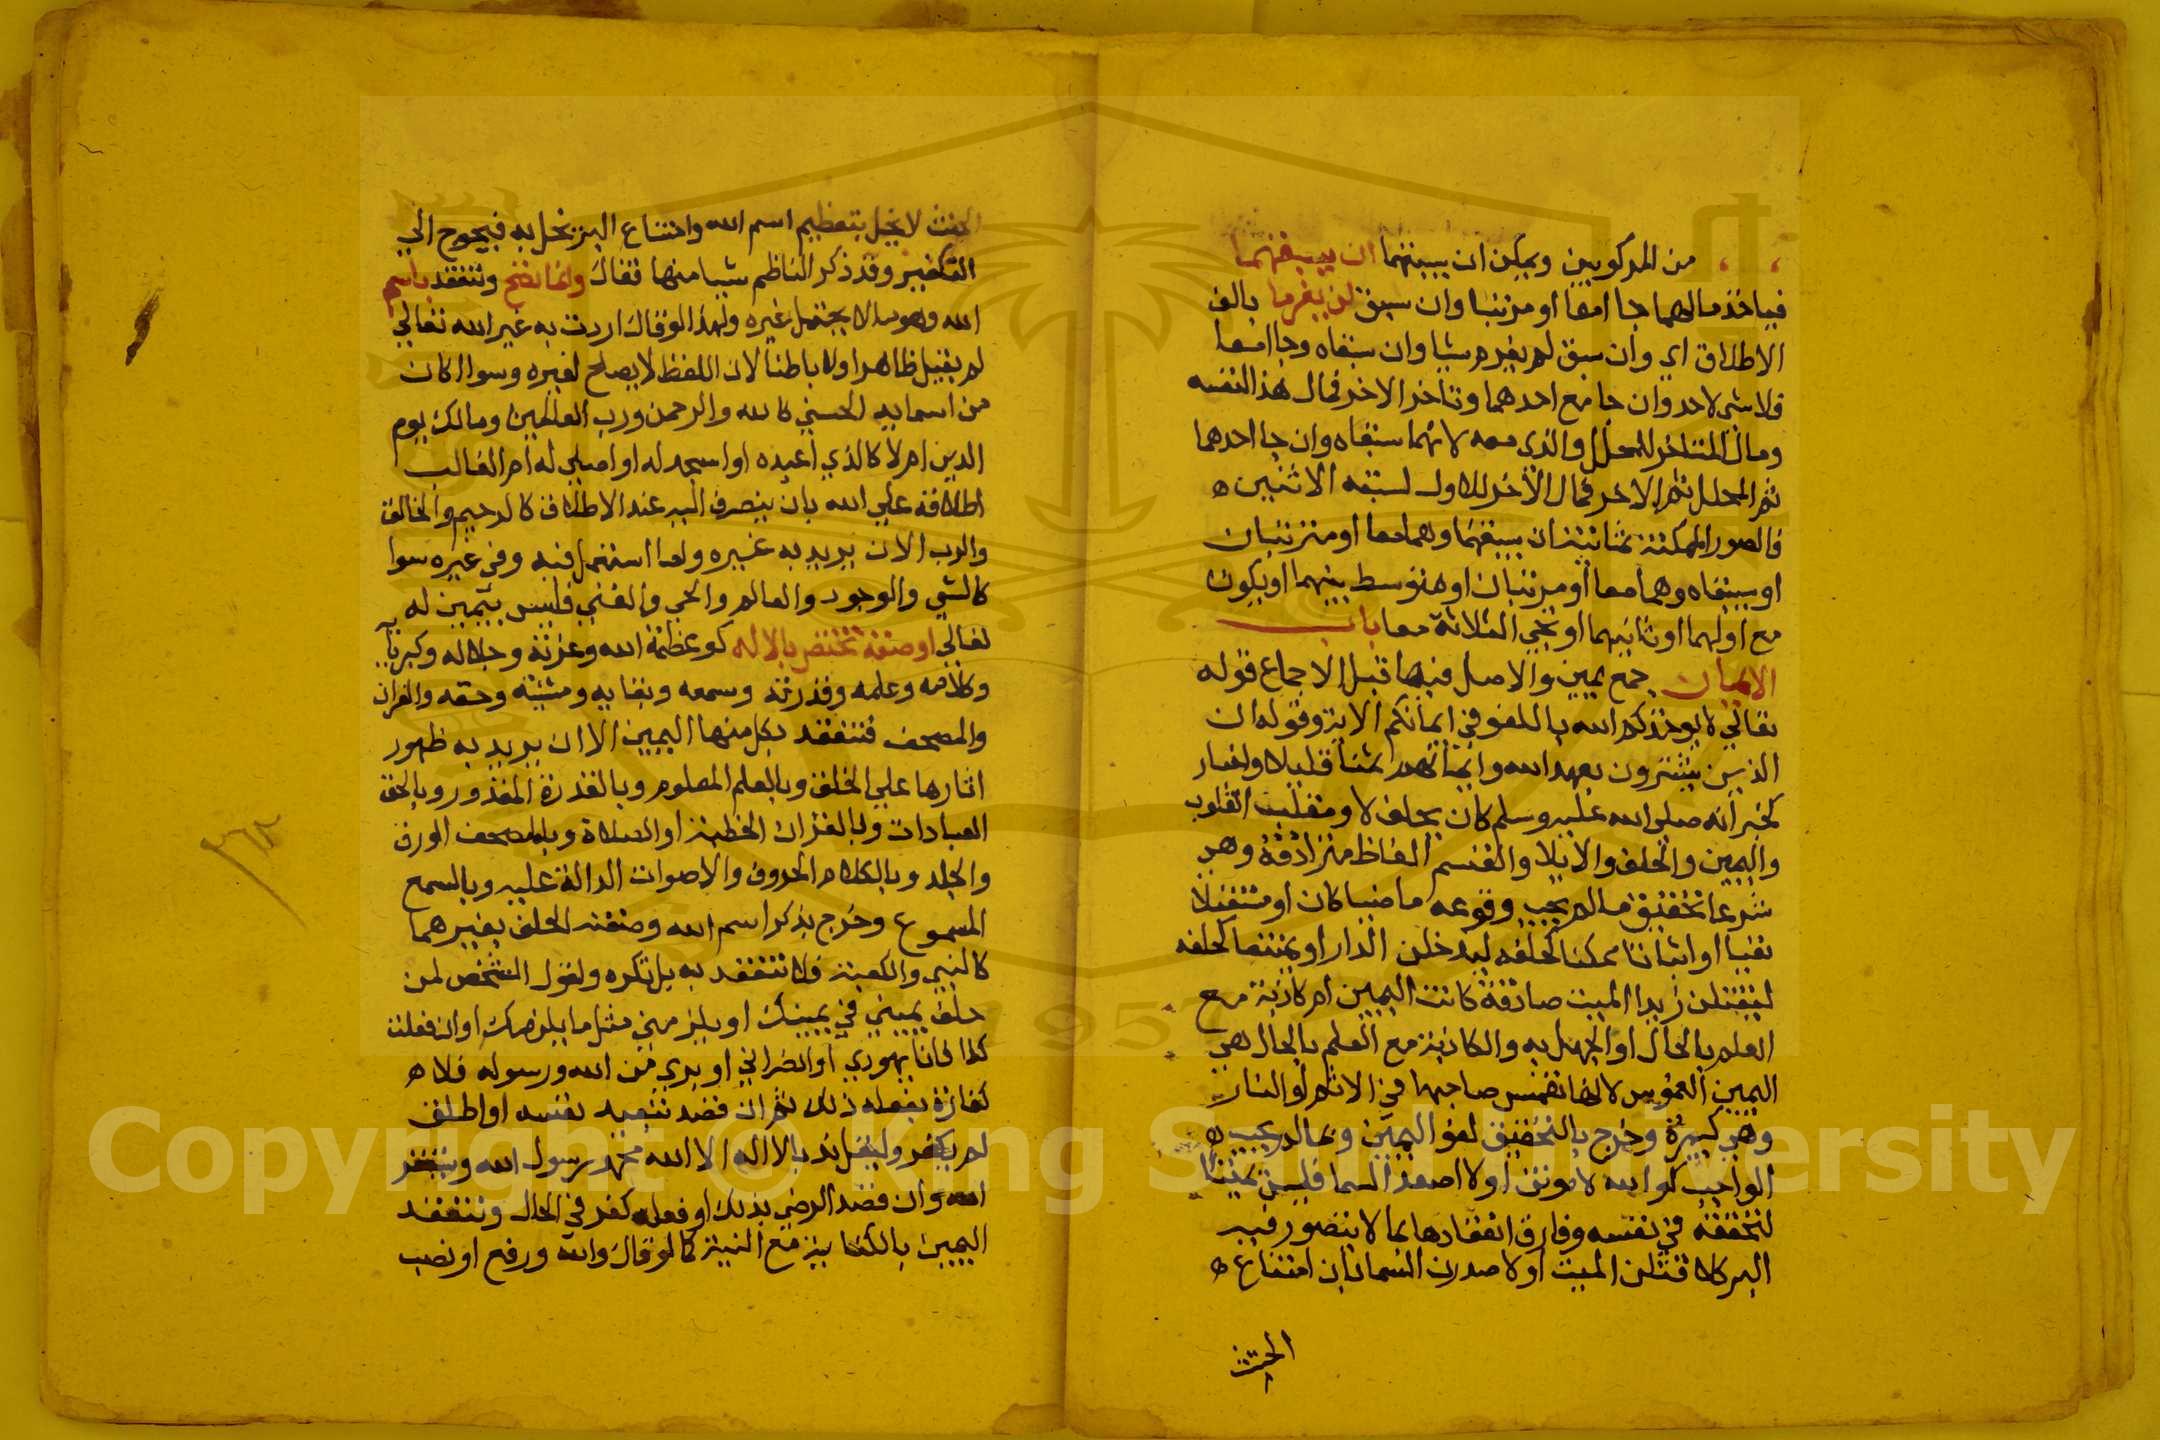 من المركوبين ويمكن ان يسبقهما ان يسبقهما
فياخذ مالهما جاا معا او مرتبا وان سبق لن يغرما بالف
الاطلاق اي وان سبق لم يغرم شيا وان سبقاه وجاا معا
فلا شي لاحد وان جا مع احدهما وتاخر الاخر فمال هذا لنفسه
ومال المتاخر للمحلل والذي معه لانهما سبقاه وان جا احدهما
ثم المحلل ثم الاخر فمال الآخر للاول لسبقه الاثنين ه
فالصور الممكنة ثمانية ان يسبقهما وهما معا او مترتبان
او يسبقاه وهما معا او مرتبان او هو متوسط بينهما او يكون
مع اولهما او ثانيهما او تجي الثلاثة معا باب
الايمان جمع يمين والاصل فيها قبل الاجماع قوله
تعالي لا يوخذكم الله باللغو في ايمانكم الاية وقوله ان
الذين يشترون بعهد الله وايمانهم ثمنا قليلا واخبار
كخبر انه صلي الله عليه وسلم كان يحلف لا ومقلب القلوب
واليمين والحلف والايلا والقسم الفاظ مترادفة وهي
شرعا تحقيق مالم يجب وقوعه ماضيا كان او مستقبلا
نفيا او اثباتا ممكنا كحلفه ليدخلن الدار او ممتنعا كحلفه
ليقتلن زيدا الميت صادقة كانت اليمين ام كاذبة مع
العلم بالحال او الجهل به والكاذبة مع العلم بالحال هي
اليمين الغموس لانها تغمس صاحبها في الاثم او النار
وهي كبيرة وخرج بالتحقيق لغو اليمين وبمالم يجب ه
الواجب كوالله لاموتن او لا اصعد السما فليس يمينا
لتحققه في نفسه وفارق انعقادها بما لا يتصور فيه
البر كلا قتلن الميت او لاصعدن السما بان امتناع ه
الحنث
الحنث لا يخل بتعظيم اسم الله وامتناع البر يخل به فيحوج الي
التكفير وقد ذكر الناظم شيا منها فقال وانما تصح وتنعقد باسم
الله وهو مالا يحتمل غيره ولهذا لو قال اردت به غير الله تعالي
لم يقبل ظاهرا ولا باطنا لان اللفظ لا يصلح لغيره وسوا كان
من اسمايه الحسني كالله والرحمن ورب العالمين ومالك يوم
الدين ام لا كالذي اعبده او اسجد له او اصلي له ام الغالب
اطلاقه علي الله بان ينصرف اليه عند الاطلاق كالرحيم والخالق
والرب الا ان يريد به غيره ولما استعمل فيه وفي غيره سوا
كالشي والموجود والعالم والحي والغني فليس بيمين له
تعالي او صفة تختص بالاله كوعظمة الله وعزته وجلاله وكبرياىه
وكلامه وعلمه وقدرته وسمعه وبقايه ومشيته وحقه والقران
والمصحف فتنعقد بكل منها اليمين الا ان يريد به ظهور
اثارها علي الخلق وبالعلم المعلوم وبالقدرة المقدور وبالحق
العبادات وبالقران الخطبة او الصلاة وبالمصحف الورق
والجلد وبالكلام الحروف والاصوات الدالة عليه وبالسمع
المسموع وخرج بذكر اسم الله وصفته الحلف بغيرهما
كالنبي والكعبة فلا تنعقد به بل تكره ولقول الشخص لمن
حلف يميني في يمينك او يلزمني مثل ما يلزمك او ان فعلت
كذا فانا يهودي او نصراني او بري من الله ورسوله فلا ه
كفارة بفعله ذلك ثم ان قصد تبعيد نفسه او اطلق
لم يكفر وليقل ندبا لا اله الا الله محمد رسول الله ويستغفر
الله وان قصد الرضي بذلك او فعله كفر في الحال وتنعقد
اليمين بالكناية مع النية كما لو قال والله ورفع او نصب
٢٦٣
Copyright © King Saud University
1957